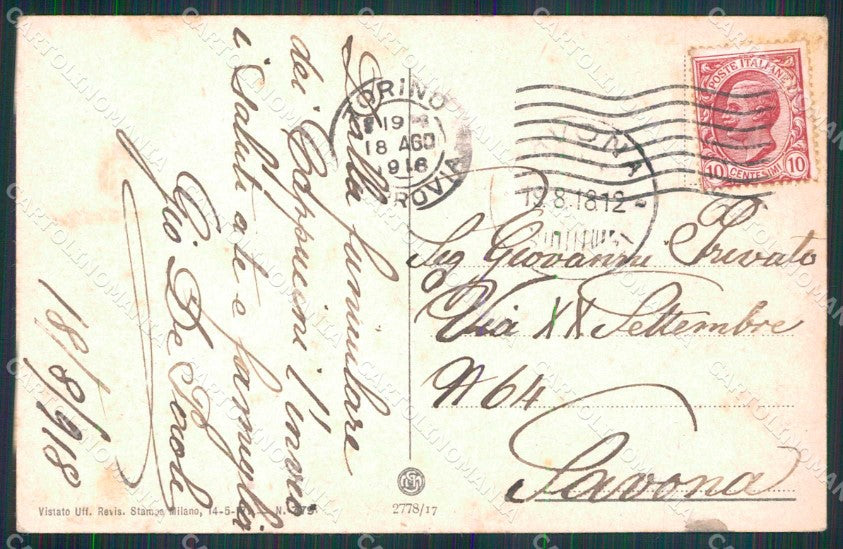 Dalla funiculare
dei Cappucini l'invio
i saluti a te e famiglia
Gio De
18/8/918
TORINO
19
18 AGO
1918
FERROVIA
SAVONA
19.8.18.12
POSTE ITALIANE
10 CENTESIMI 10
Sig Giovanni Privato
Via XX Settembre
N 64
Savona
Vistato Uff. Revis. Stampa Milano, 14-5-
2778/17
CARTOLINOMANIA